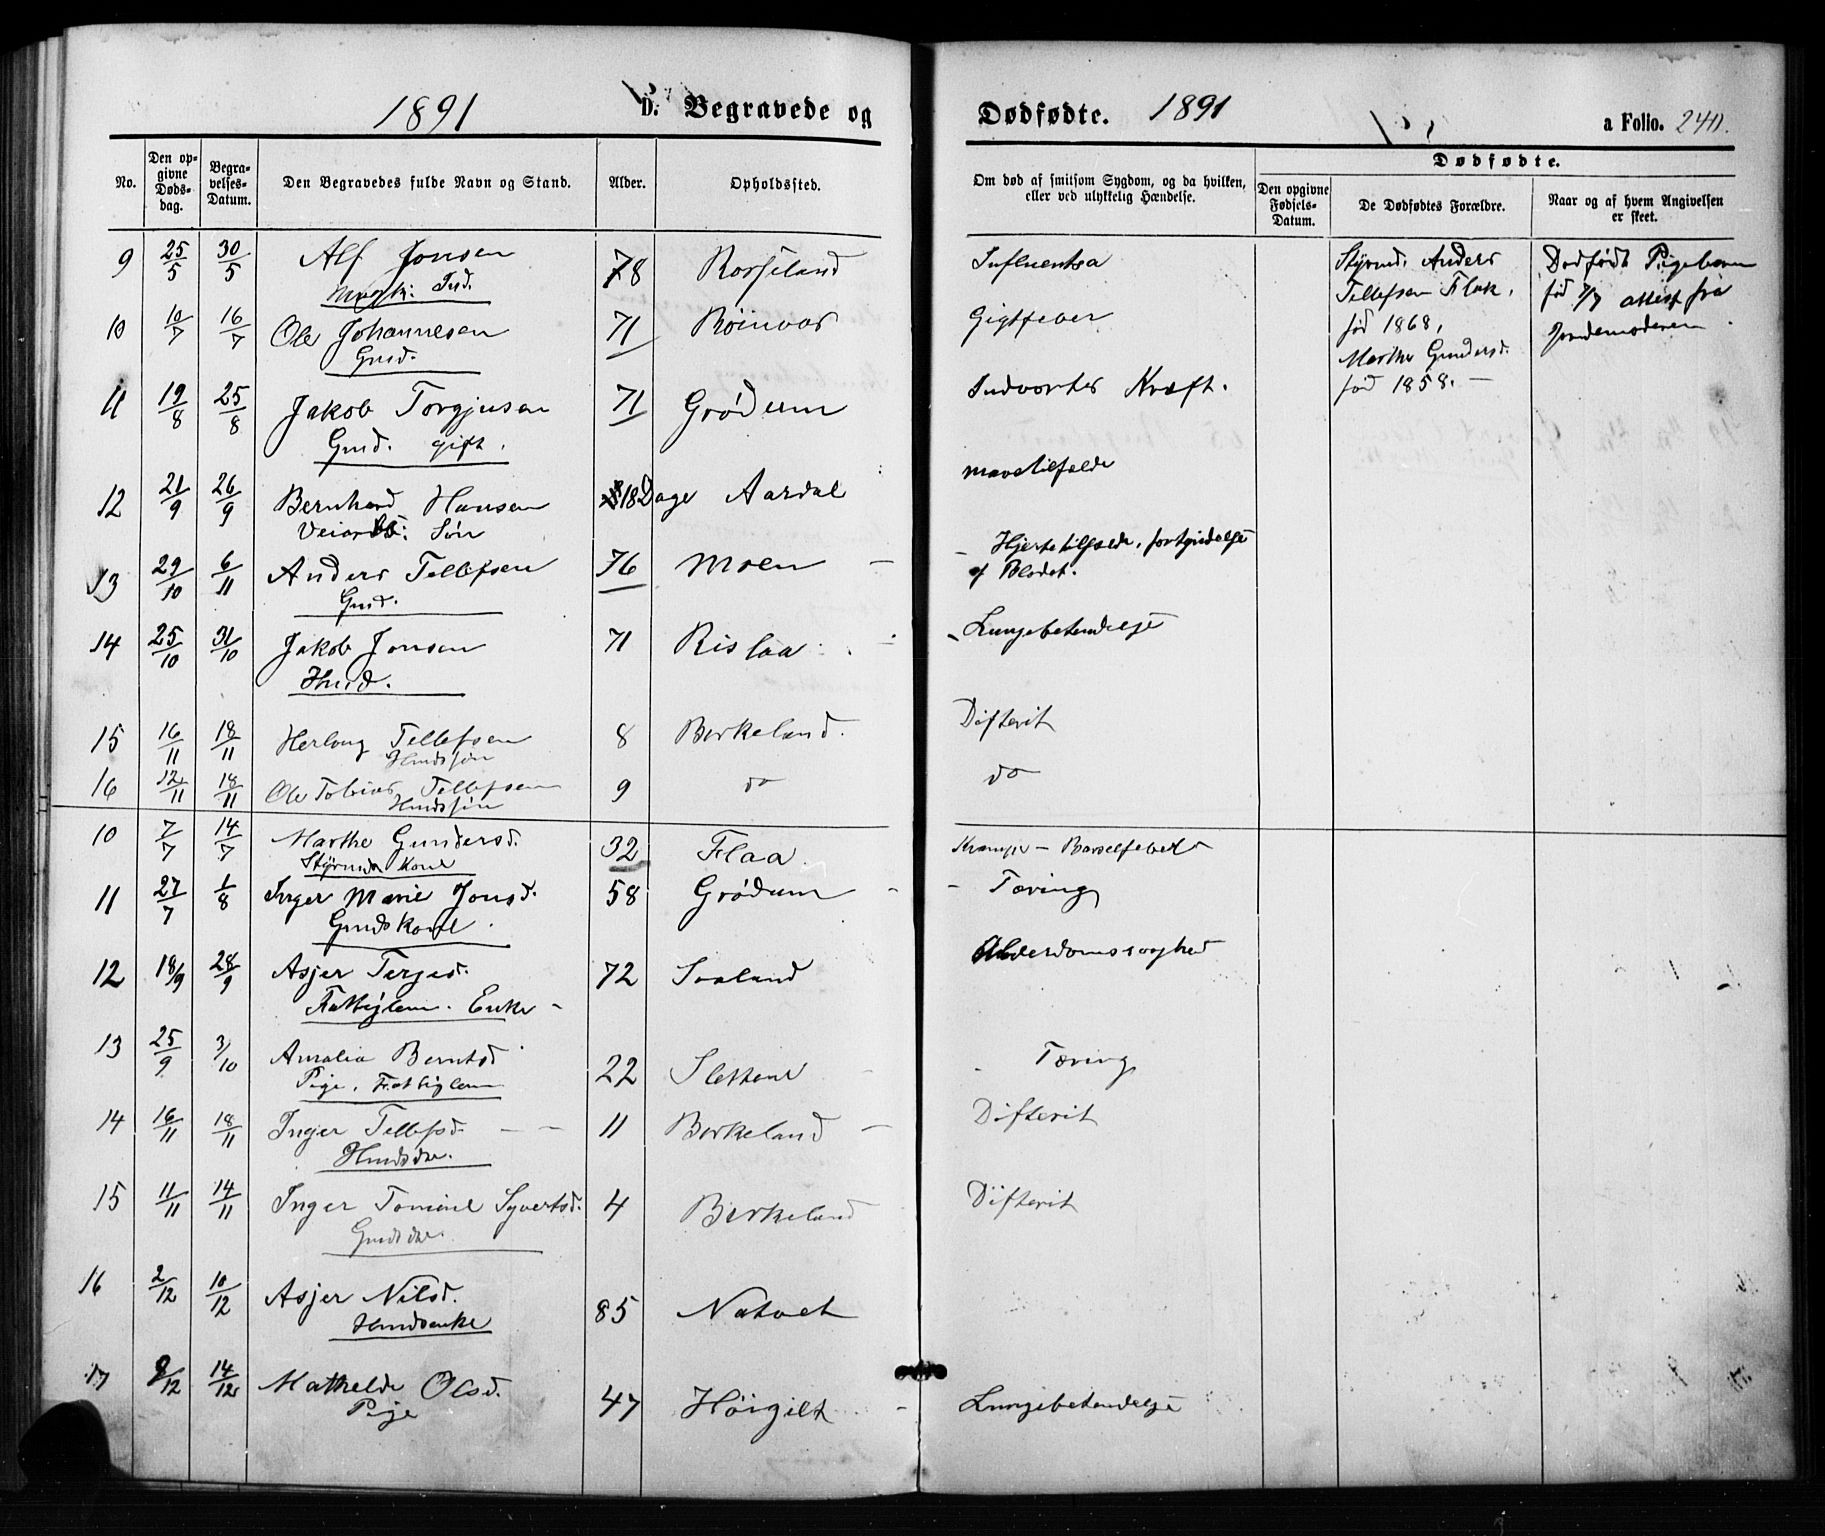 1891 D. Begravede og Dødfødte. 1891 a Folio. 240.
No. Den opgivne Dødsdag. Begravelses-Datum. Den Begravedes fulde Navn og Stand. Alder. Opholdssted. Om død af smitsom Sygdom, og da hvilken, eller ved ulykkelig Hændelse. Den opgivne Fødsels-Datum. De Dødfødtes Forældre. Naar og af hvem Angivelsen er skeet.
Dødfødte.
9 25/5 30/5 Alf Jonsen 78 Rosseland Influentsa
Ind.
Styrmd. Anders
Tellefsen Flaa,
fød 1868,
Marthe Gundersd.
fød 1858. —
Dødfødt Pigebarn
fød 7/7 attest fra
Jordemoderen.
10 10/7 16/7 Ole Johannesen 71 Røinvas Gigtfeber
Gmd.
11 19/8 25/8 Jakob Torgjusen 71 Grødum Indvortes Kræft.
Gmd. gift.
12 21/9 26/9 Bernhard Hansen 18 Dage Aardal Mavetilfælde
Veiarb: Søn
13 29/10 6/11 Anders Tellefsen 76 Moen – Hjertetilfælde, fortyndelse
Gmd. af Blodet.
14 25/10 31/10 Jakob Jonsen 71 Rislaa Lungebetendelse
Hmd.
15 16/11 18/11 Herlaug Tellefsen 8 Berkeland. Difterit
Hmdssøn
16 12/11 18/11 Ole Tobias Tellefsen 9 do do
Hmdssøn
10 7/7 14/7 Marthe Gundersd. 32 Flaa Krampe – Barselfeber
Styrmds Kone
11 27/7 1/8 Inger Marie Jonsd. 58 Grødum – Tæring
Gmds Kone.
12 18/9 28/9 Asjer Terjesd. 72 Soaland Alderdomssvaghed
Fattiglem. Enke –
13 25/9 3/10 Amalia Berntsd. 22 Slettene Tæring
Pige. Fattiglem
14 16/11 18/11 Inger Tellefsd. 11 Berkeland Difterit
Hmdsdr.
15 11/11 14/11 Inger Tomine Syvertsd. 4 Berkeland Difterit
Gmdsdr.
16 2/12 10/12 Asjer Nilsd. 85 Natvet
Hmdsenke
17 9/12 14/12 Mathelde Olsd. 47 Høigilt Lungebetendelse
Pige